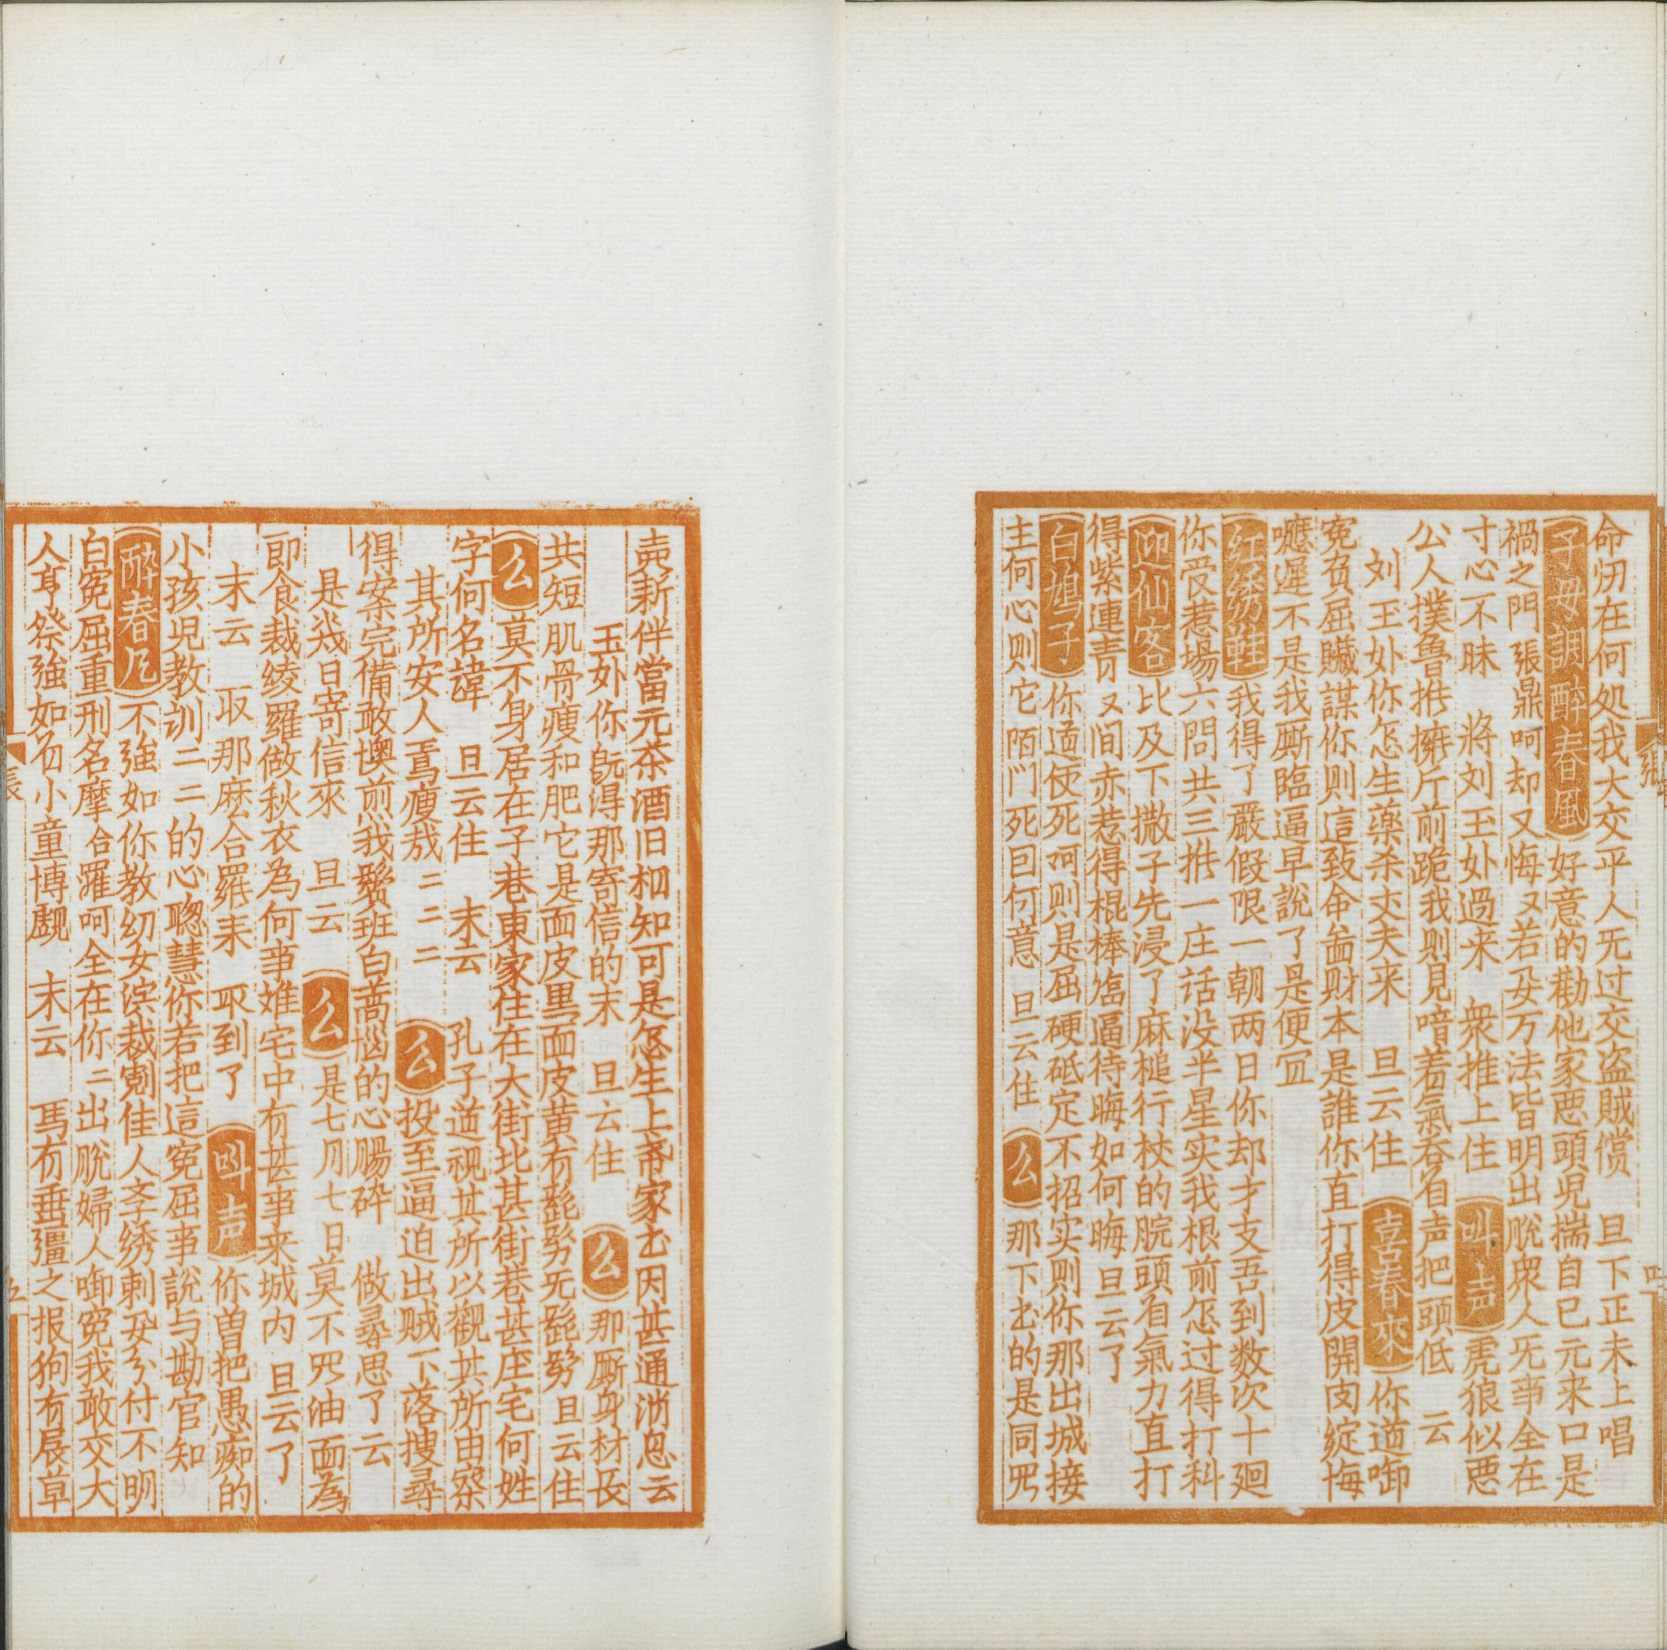 命㓛在何処我大交平人旡过交盗賊償　旦下正末上唱
子母調醉春風　好意的勸他家悪頭児揣自己元来口是
禍之門張鼎呵却又悔又若妛万法皆明出脱衆人旡事全在
寸心不昧　將刘玉处過来　衆推上住　叫声　虎狼似悪
公人撲魯推擁厅前跪我则見喑着氣吞名声把頭低　云
刘玉处你怎生薬杀丈夫来　旦云住　喜春來　你道啣
寃負屈贓謀你则這致命啚财本是誰你直打得皮開肉綻悔
嚈遅不是我厮臨逼早說了是便冝
红绣鞋　我得了嚴假限一朝两日你却才支吾到数次十廻
你受惹場六問共三推一庄話没半星实我根前怎过得打科
迎仙客　比及下撒子先浸了麻槌行杖的脘頭有氣力直打
得紫連青又间赤惹得棍棒临逼待晦如何晦旦云了
白鳩子　你適使死呵则是屈硬砥定不招实则你那出城接
主何心则它陌门死囙何意　旦云住　么　那下𡈽的是同咒
壳新伴當元茶酒旧柤知可是怎生上帝家去因甚通消息云
玉处你旣淂那寄信的末　旦云住　么　那厮身材长
共短肌骨瘦和肥它是面皮黒面皮黄有髭髣旡髭髣　旦云住
么　莫不身居在子巷東家住在大街北甚街巷甚庄宅何姓
字何名諱　旦云住　末云　孔子道視其所以觀其所由察
其所安人焉瘦㢤二二二　么　投至逼迫出贼下落搜尋
得安桼完備敢懊煎我鬓班白蒿惱的心腸碎　做尋思了云
是㡬日寄信來　旦云　么　是七月七日莫不咒油面為
即食裁綾羅做秋衣為何事婎宅中有甚事来城内　旦云了
末云　取那麽合羅来　取到了　叫声　你曽把愚痴的
小孩児教训二二的心聦慧你若把這寃屈事說与勘官知
醉春風　不強如你教幼女浜裁剪佳人孛绣刺妛分付不明
白寃屈重刑名摩合羅呵全在你二出脱婦人啣寃我敢交大
人享祭強如名小童博戲　末云　馬有垂韁之报狗有展草